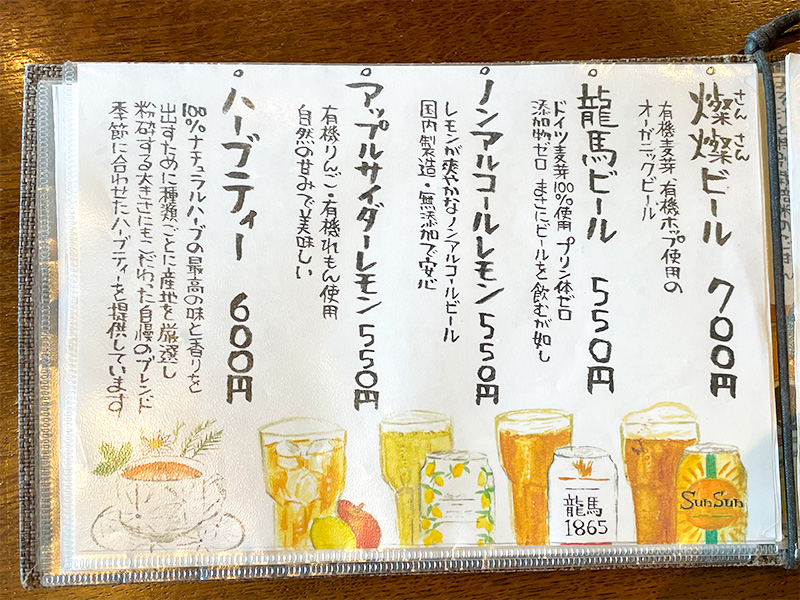 さん さん
燦燦ビール 700円
有機麦芽、有機ホップ使用の
オーガニックビール
龍馬ビール 550円
ドイツ麦芽100%使用 プリン体ゼロ
添加物ゼロ まさにビールを飲むが如し
ノンアルコールレモン 550円
レモンが爽やかなノンアルコールビール
国内製造・無添加で安心
アップルサイダーレモン 550円
有機りんご・有機れもん使用
自然の甘みで美味しい
ハーブティー 600円
100%ナチュラルハーブの最高の味と香りを
出すために種類ごとに産地を厳選し
粉砕する大きさにもこだわった自慢のブレンド
季節に合わせたハーブティを提供しています
龍馬
1865
SunSun